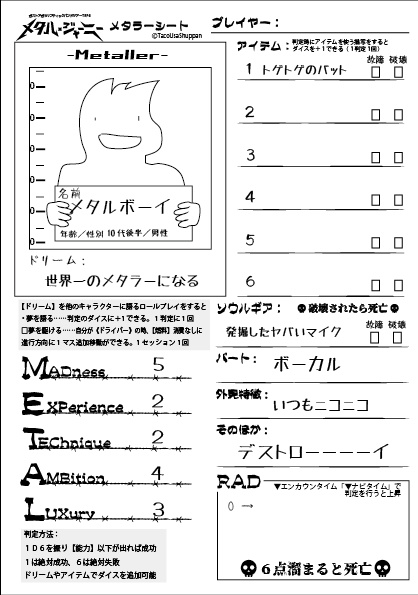 メタル・ジャーニー メタラーシート
©TacoUsaShuppan
プレイヤー：
-Metaller-
名前
メタルボーイ
年齢／性別 10代後半／男性
ドリーム：
世界一のメタラーになる
【ドリーム】を他のキャラクターに語るロールプレイをすると
・夢を語る……判定のダイスに+1できる。1判定に1回
□夢を駆ける……自分が《ドライバー》の時、【燃料】消費なしに
進行方向に1マス追加移動ができる。1セッション1回
MADness 5
EXPerience 2
TEChnique 2
AMBition 4
LUXury 3
判定方法：
1D6を振り【能力】以下が出れば成功
1は絶対成功、6は絶対失敗
ドリームやアイテムでダイスを追加可能
アイテム：
判定時にアイテムを使う描写をすると
ダイスを+1できる（1判定1回）
故障 破壊
1 トゲトゲのバット
2
3
4
5
6
ソウルギア： 破壊されたら死亡
故障 破壊
発掘したヤバいマイク
パート： ボーカル
外見特徴：
いつもニコニコ
そのほか：
デストローーーーイ
RAD
▼エンカウンタイム「▼ナビタイム」で
判定を行うと上昇
0 →
6点溜まると死亡